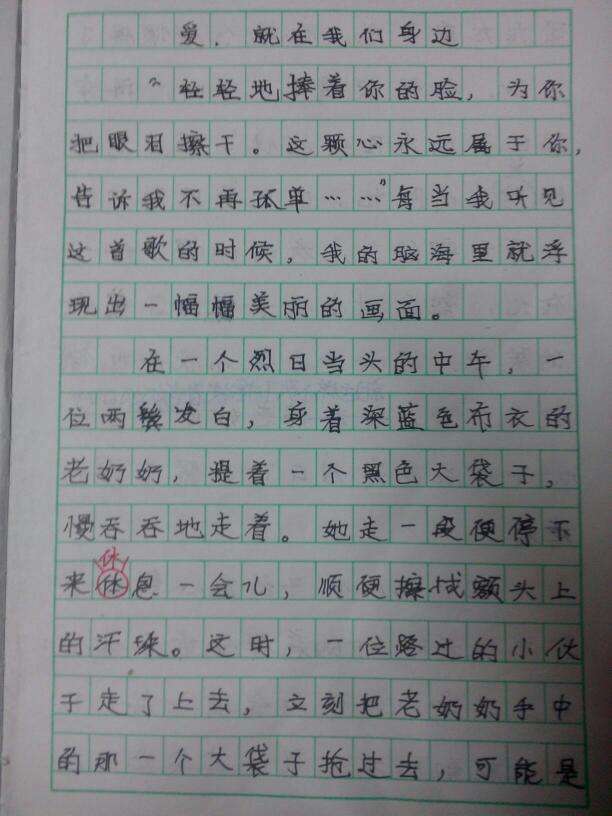 爱，就在我们身边
"轻轻地捧着你的脸，为你
把眼泪擦干。这颗心永远属于你，
告诉我不再孤单……"每当我听见
这首歌的时候，我的脑海里就浮
现出一幅幅美丽的画面。
在一个烈日当头的中午，一
位两鬓发白，身着深蓝色布衣的
老奶奶，提着一个黑色大袋子，
慢吞吞地走着。她走一段便停下
休
来休息一会儿，顺便擦拭额头上
的汗珠。这时，一位路过的小伙
子走了上去，立刻把老奶奶手中
的那一个大袋子抢过去，可能是